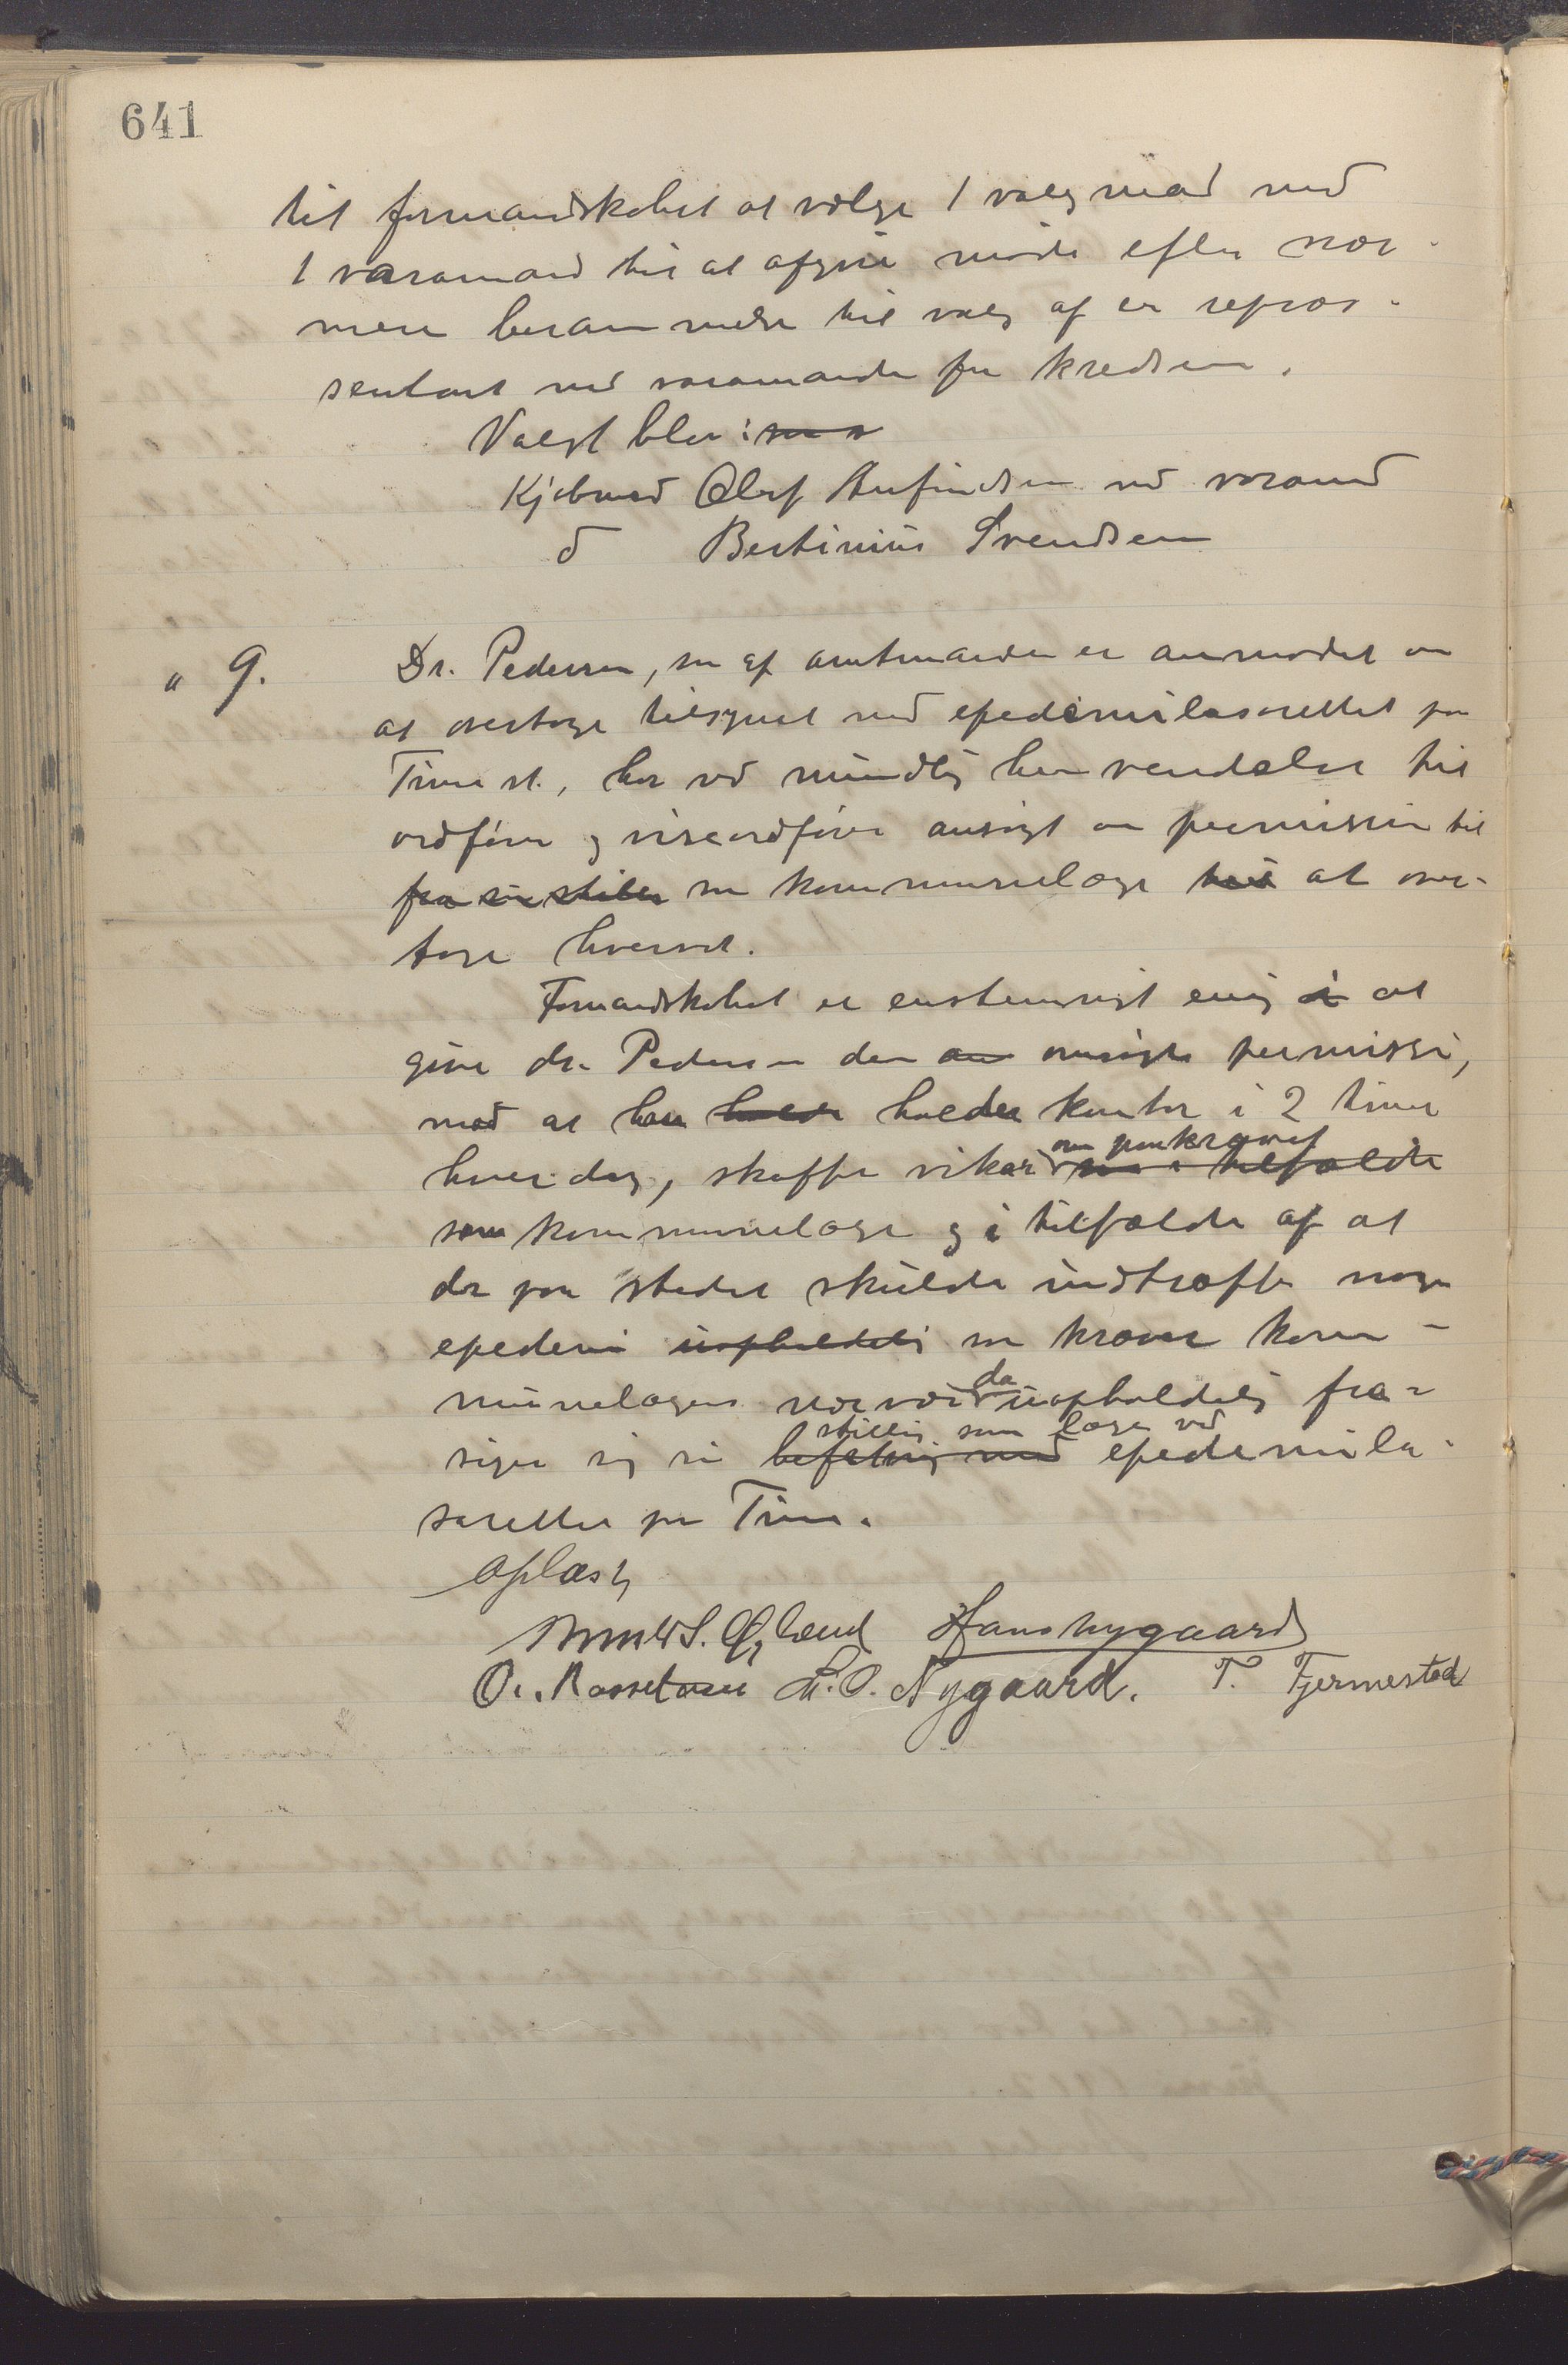 641
til formandskabet at vælge 1 valgmand med
1 varamand til at afgive møde efter nær-
mere berammelse til valg af en repræ-
sentant med varamænd for kredsen.
Valgt blev:
Kjøbmand Olaf Anfindsen med varamand
d Bertinius Svendsen
" 9. Dr. Pedersen, som af amtmanden er anmodet om
at overtage tilsynet med epedemilasarettet paa
Time st., har ved mundtlig henvendelse til
ordfører og viseordfører ansøgt om permission til
fra sin stilling som kommunelæge til at over-
tage hvervet.
Formandskabet er enstemmigt enig i at
give dr. Pedersen den omsøgte permission,
mod at han holder kontor i 2 timer
hver dag, skaffer vikar om paakrævet i tilfælde
som kommunelæge og i tilfælde af at
der paa stedet skulde indtræffe nogen
epedemi uopholdelig som kræver kom-
munelægens nærvær da uopholdelig fra-
sige sig sin stilling som læge ved epedemila-
sarettet paa Time.
Oplæst
S. Øgland Hans Nygaard
O. Rosseland M. O. Nygaard. T. Fjermestad